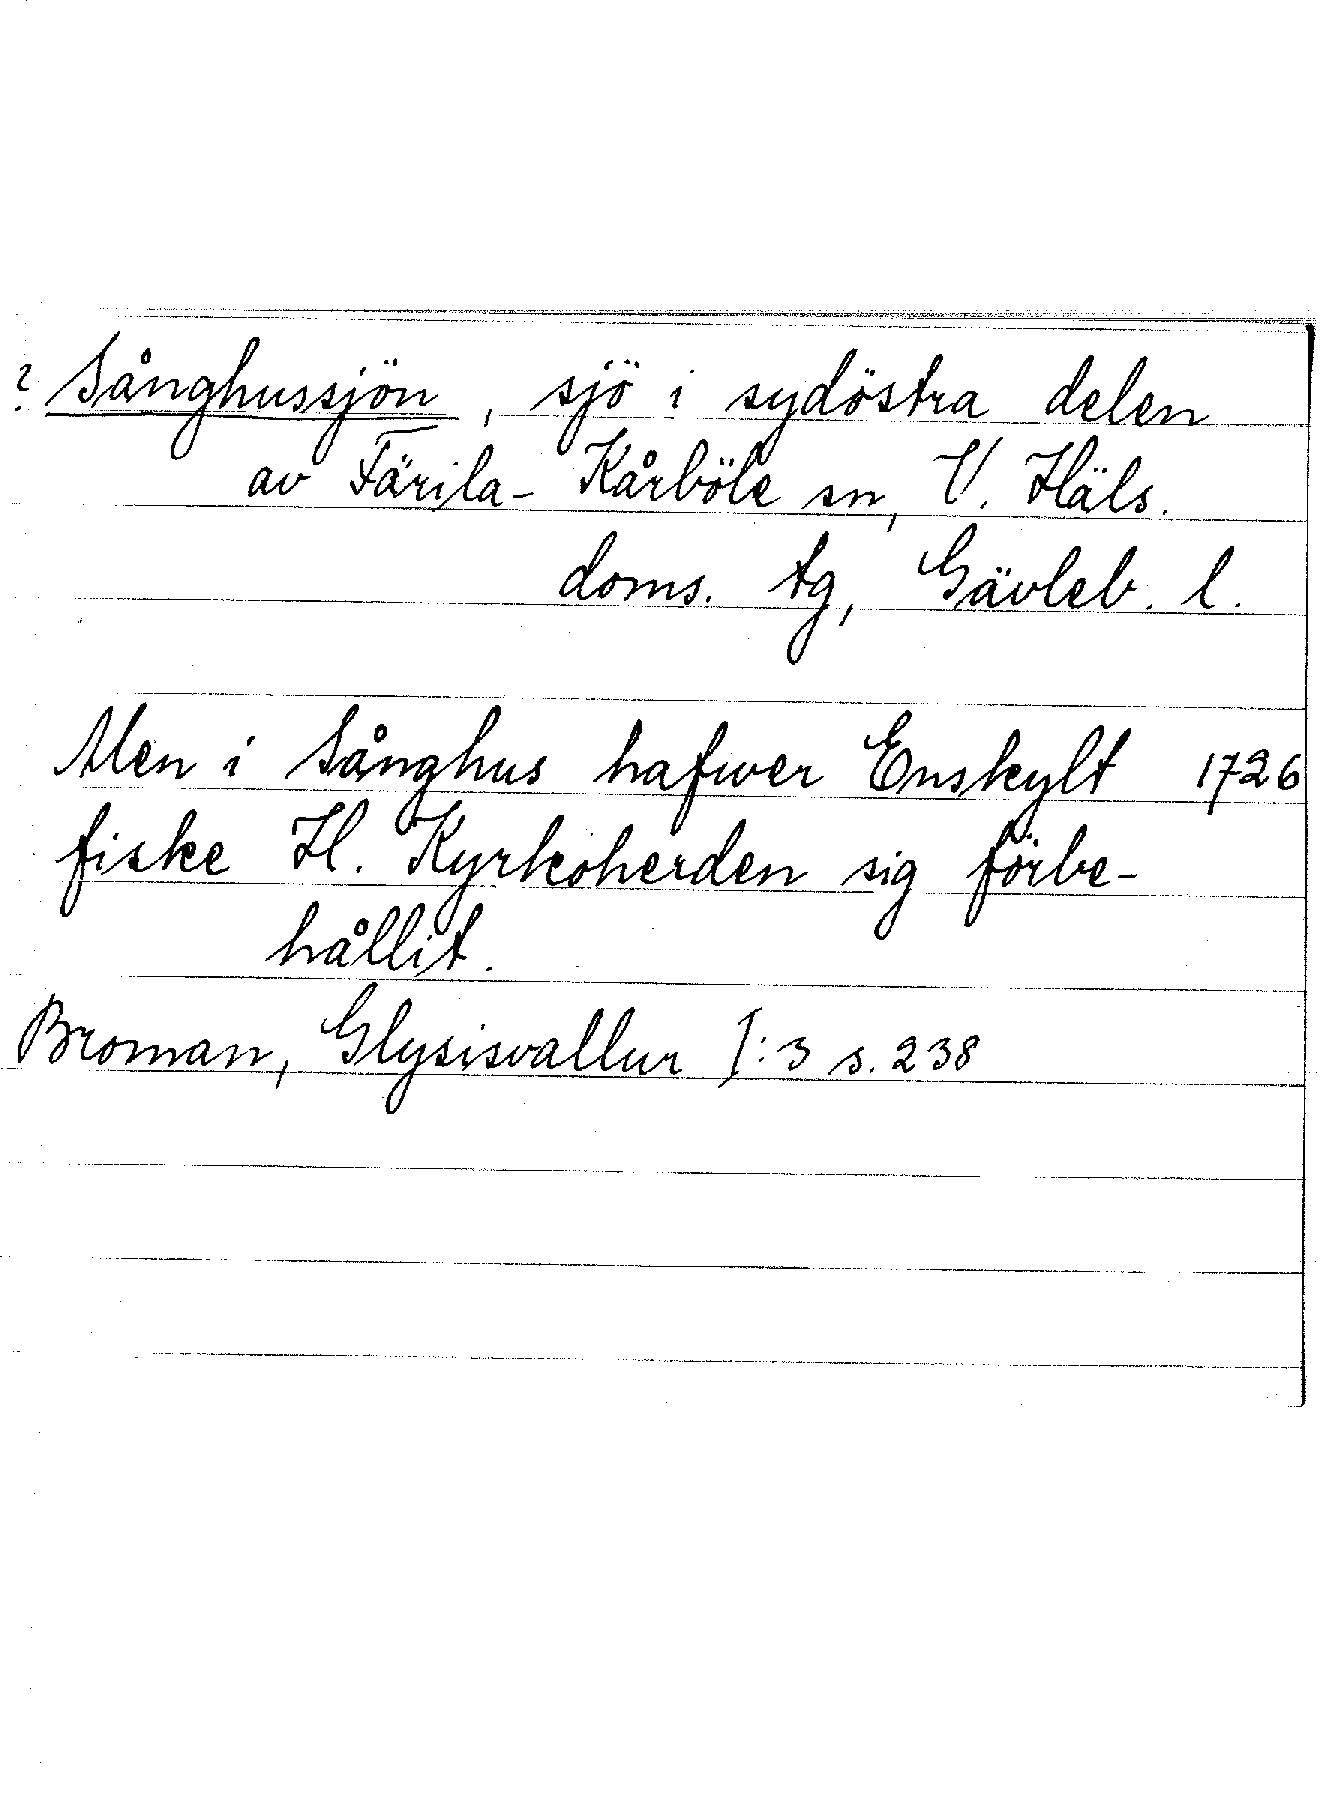 ? Sånghussjön, sjö i sydöstra delen
av Färila-Kårböle sn, V. Häls.
doms. tg, Gävleb. l.
Men i Sånghus hafwer Enskylt 1726
fiske H. Kyrkoherden sig förbe-
hållit.
Broman, Glysisvallur I:3 s. 238